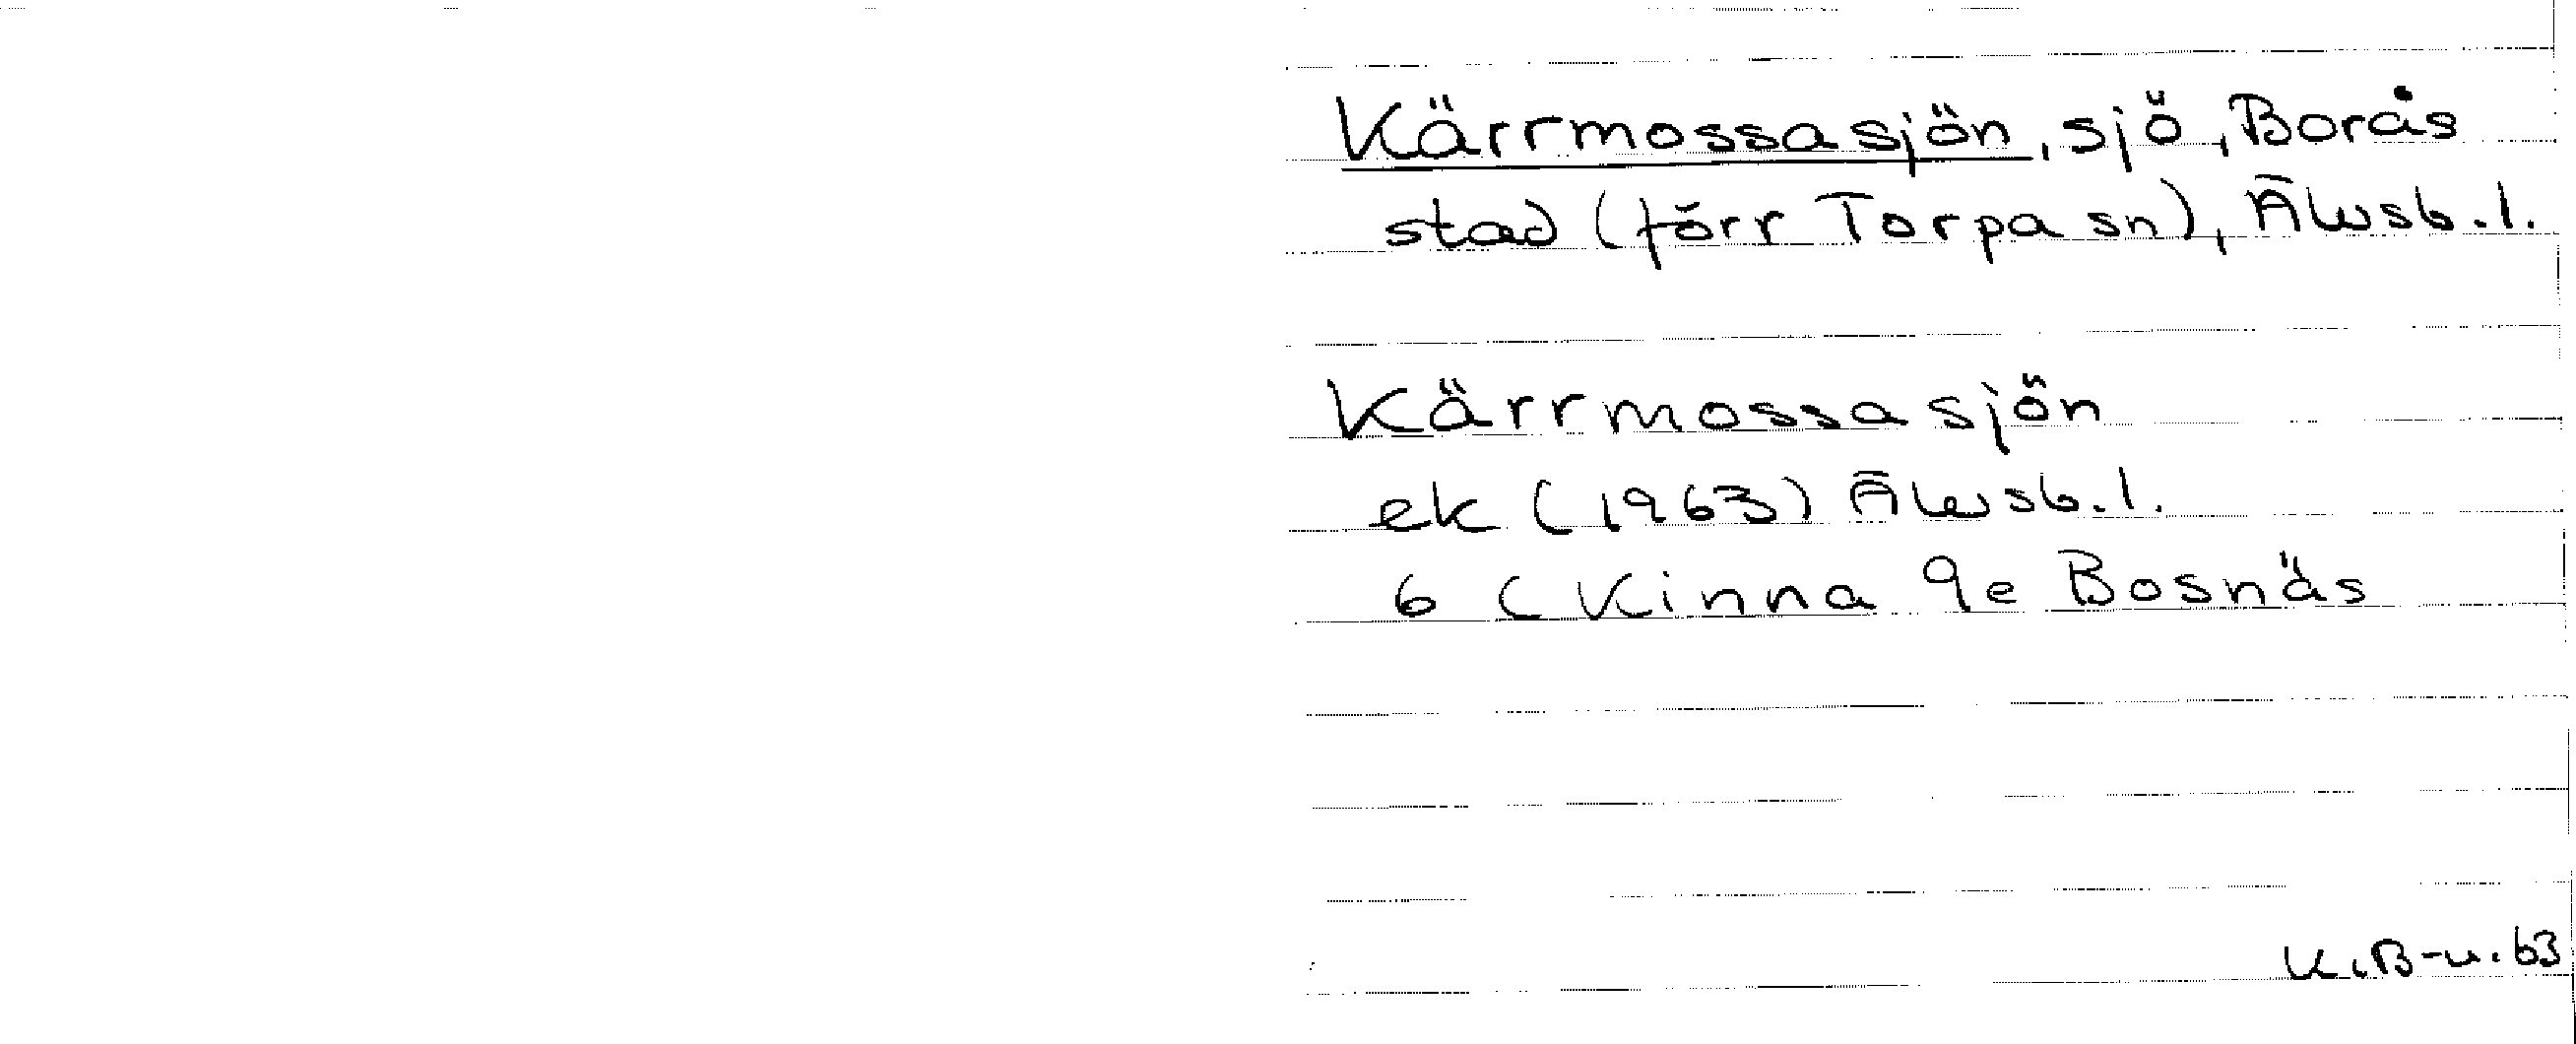 Kärrmossasjön, sjö, Borås
stad (förr Torpa sn), Älvsb. l.
Kärrmossasjön
ek (1963) Älvsb. l.
6 C Kinna 9e Bosnäs
K.B-n. 63